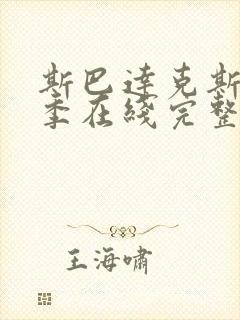 斯巴达克斯
季在线完整
王海啸